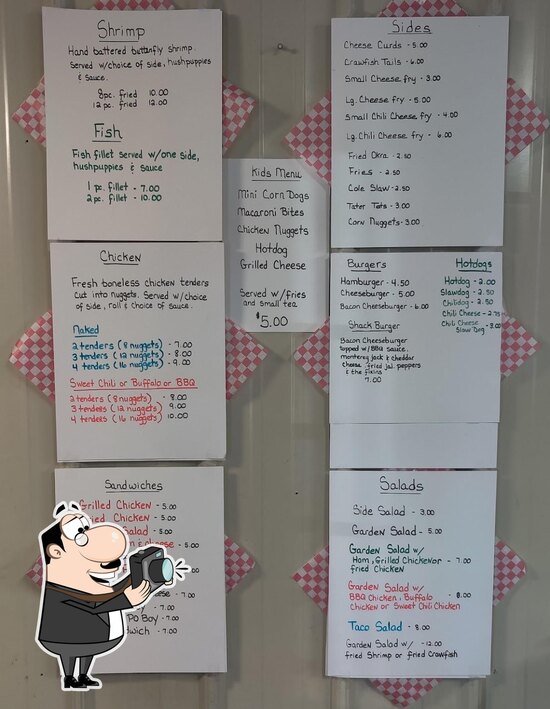 Shrimp
Hand battered butterfly shrimp.
Served w/choice of side, hushpuppies
& sauce.
8pc. fried 10.00
12 pc. fried 12.00
Fish
Fish fillet served w/one side,
hushpuppies & sauce
1 pc. fillet - 7.00
2 pc. fillet - 10.00
Chicken
Fresh boneless chicken tenders
cut into nuggets. Served w/choice
of side, roll & choice of sauce.
Naked
2 tenders (8 nuggets) - 7.00
3 tenders (12 nuggets) - 8.00
4 tenders (16 nuggets) - 9.00
Sweet Chili or Buffalo or BBQ
2 tenders (8 nuggets) - 8.00
3 tenders (12 nuggets) 9.00
4 tenders (16 nuggets) 10.00
Sandwiches
Grilled Chicken - 5.00
Chicken - 5.00
Salad - 5.00
& cheese - 5.00
- 7.00
- 7.00
Po Boy - 7.00
- 7.00
Kids Menu
Mini Corn Dogs
Macaroni Bites
Chicken Nuggets
Hotdog
Grilled Cheese
Served w/fries
and small tea
$5.00
Sides
Cheese Curds - 5.00
Crawfish Tails - 6.00
Small Cheese fry - 3.00
Lg. Cheese fry - 5.00
Small Chili Cheese fry - 4.00
Lg. Chili Cheese fry - 6.00
Fried Okra - 2.50
Fries - 2.50
Cole Slaw - 2.50
Tater Tots - 3.00
Corn Nuggets - 3.00
Burgers
Hamburger - 4.50
Cheeseburger - 5.00
Bacon Cheeseburger - 6.00
Shack Burger
Bacon Cheeseburger
topped w/BBQ sauce,
monterey jack & cheddar
cheese, fried jal. peppers
& the fixins
7.00
Hotdogs
Hotdog - 2.00
Slawdog - 2.50
Chilidog - 2.50
Chili Cheese - 2.75
Chili Cheese - 3.00
Slaw Dog
Salads
Side Salad - 3.00
Garden Salad - 5.00
Garden Salad w/
Ham, Grilled Chicken or - 7.00
fried Chicken
Garden Salad w/
BBQ Chicken, Buffalo - 8.00
Chicken or Sweet Chili Chicken
Taco Salad - 8.00
Garden Salad w/ - 12.00
fried Shrimp or fried Crawfish